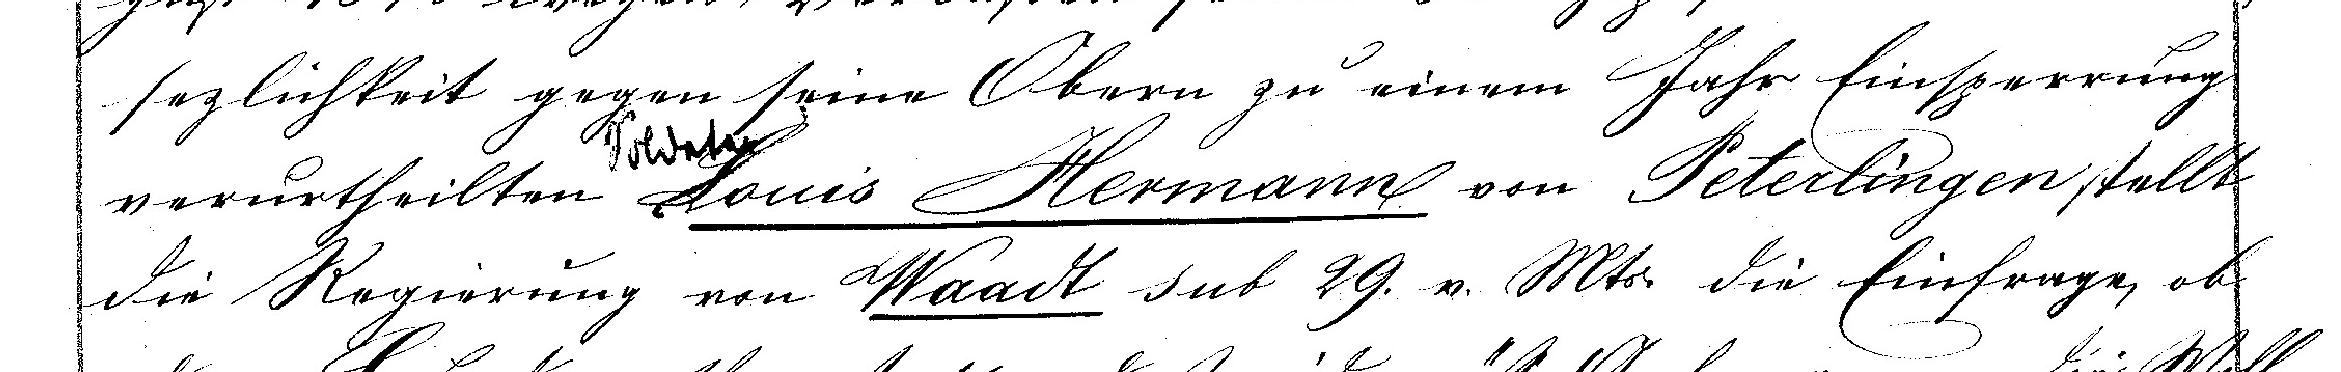 sezlichkeit gegen seine Obern zu einem Jahr Einsperrung
Soldaten
verurtheilten Louis Hermann von Peterlingen, stellt
die Regierung von Waadt sub 29. v. Mts. die Einfrage, ob